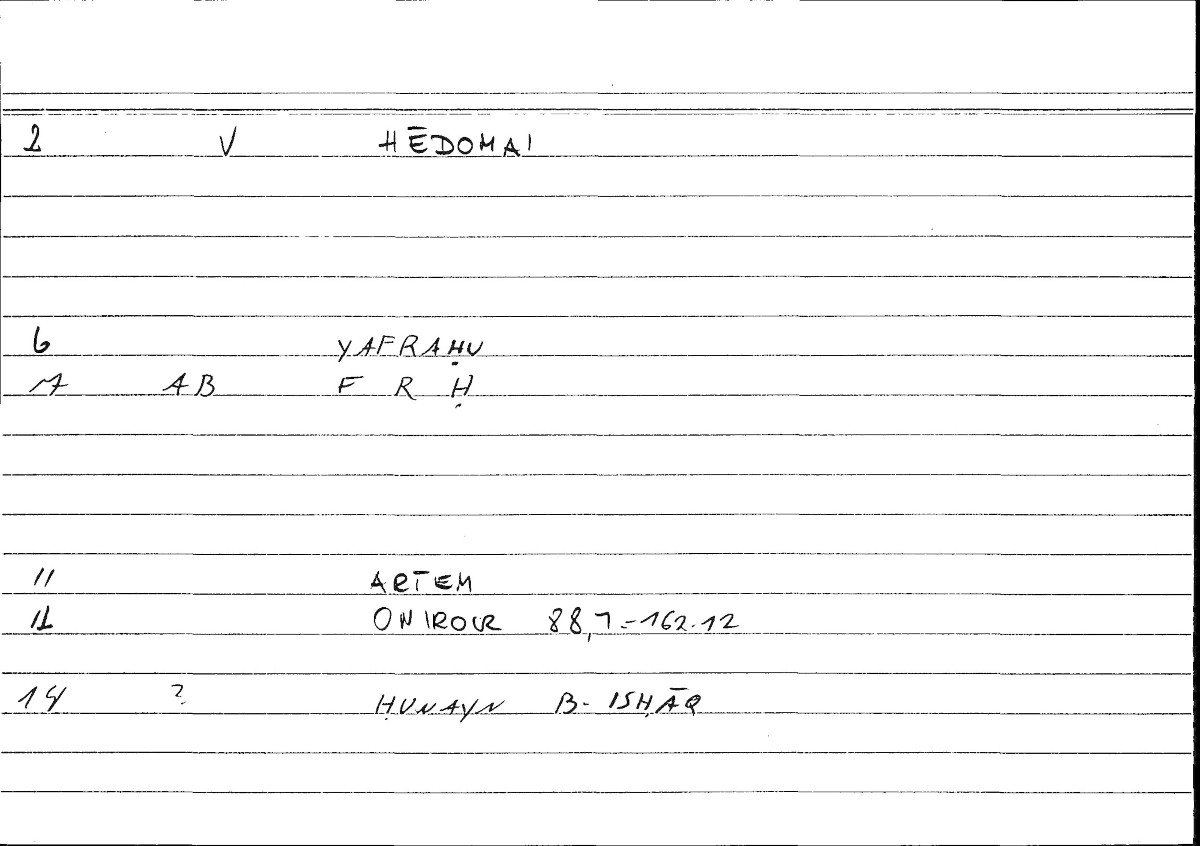 2 V HĒDOMAI
6 YAFRAḤU
7 AB F R Ḥ
11 ARTEM
12 ONIROCR 88,7-162.12
14 ? ḤUNAYN B- ISḤĀQ